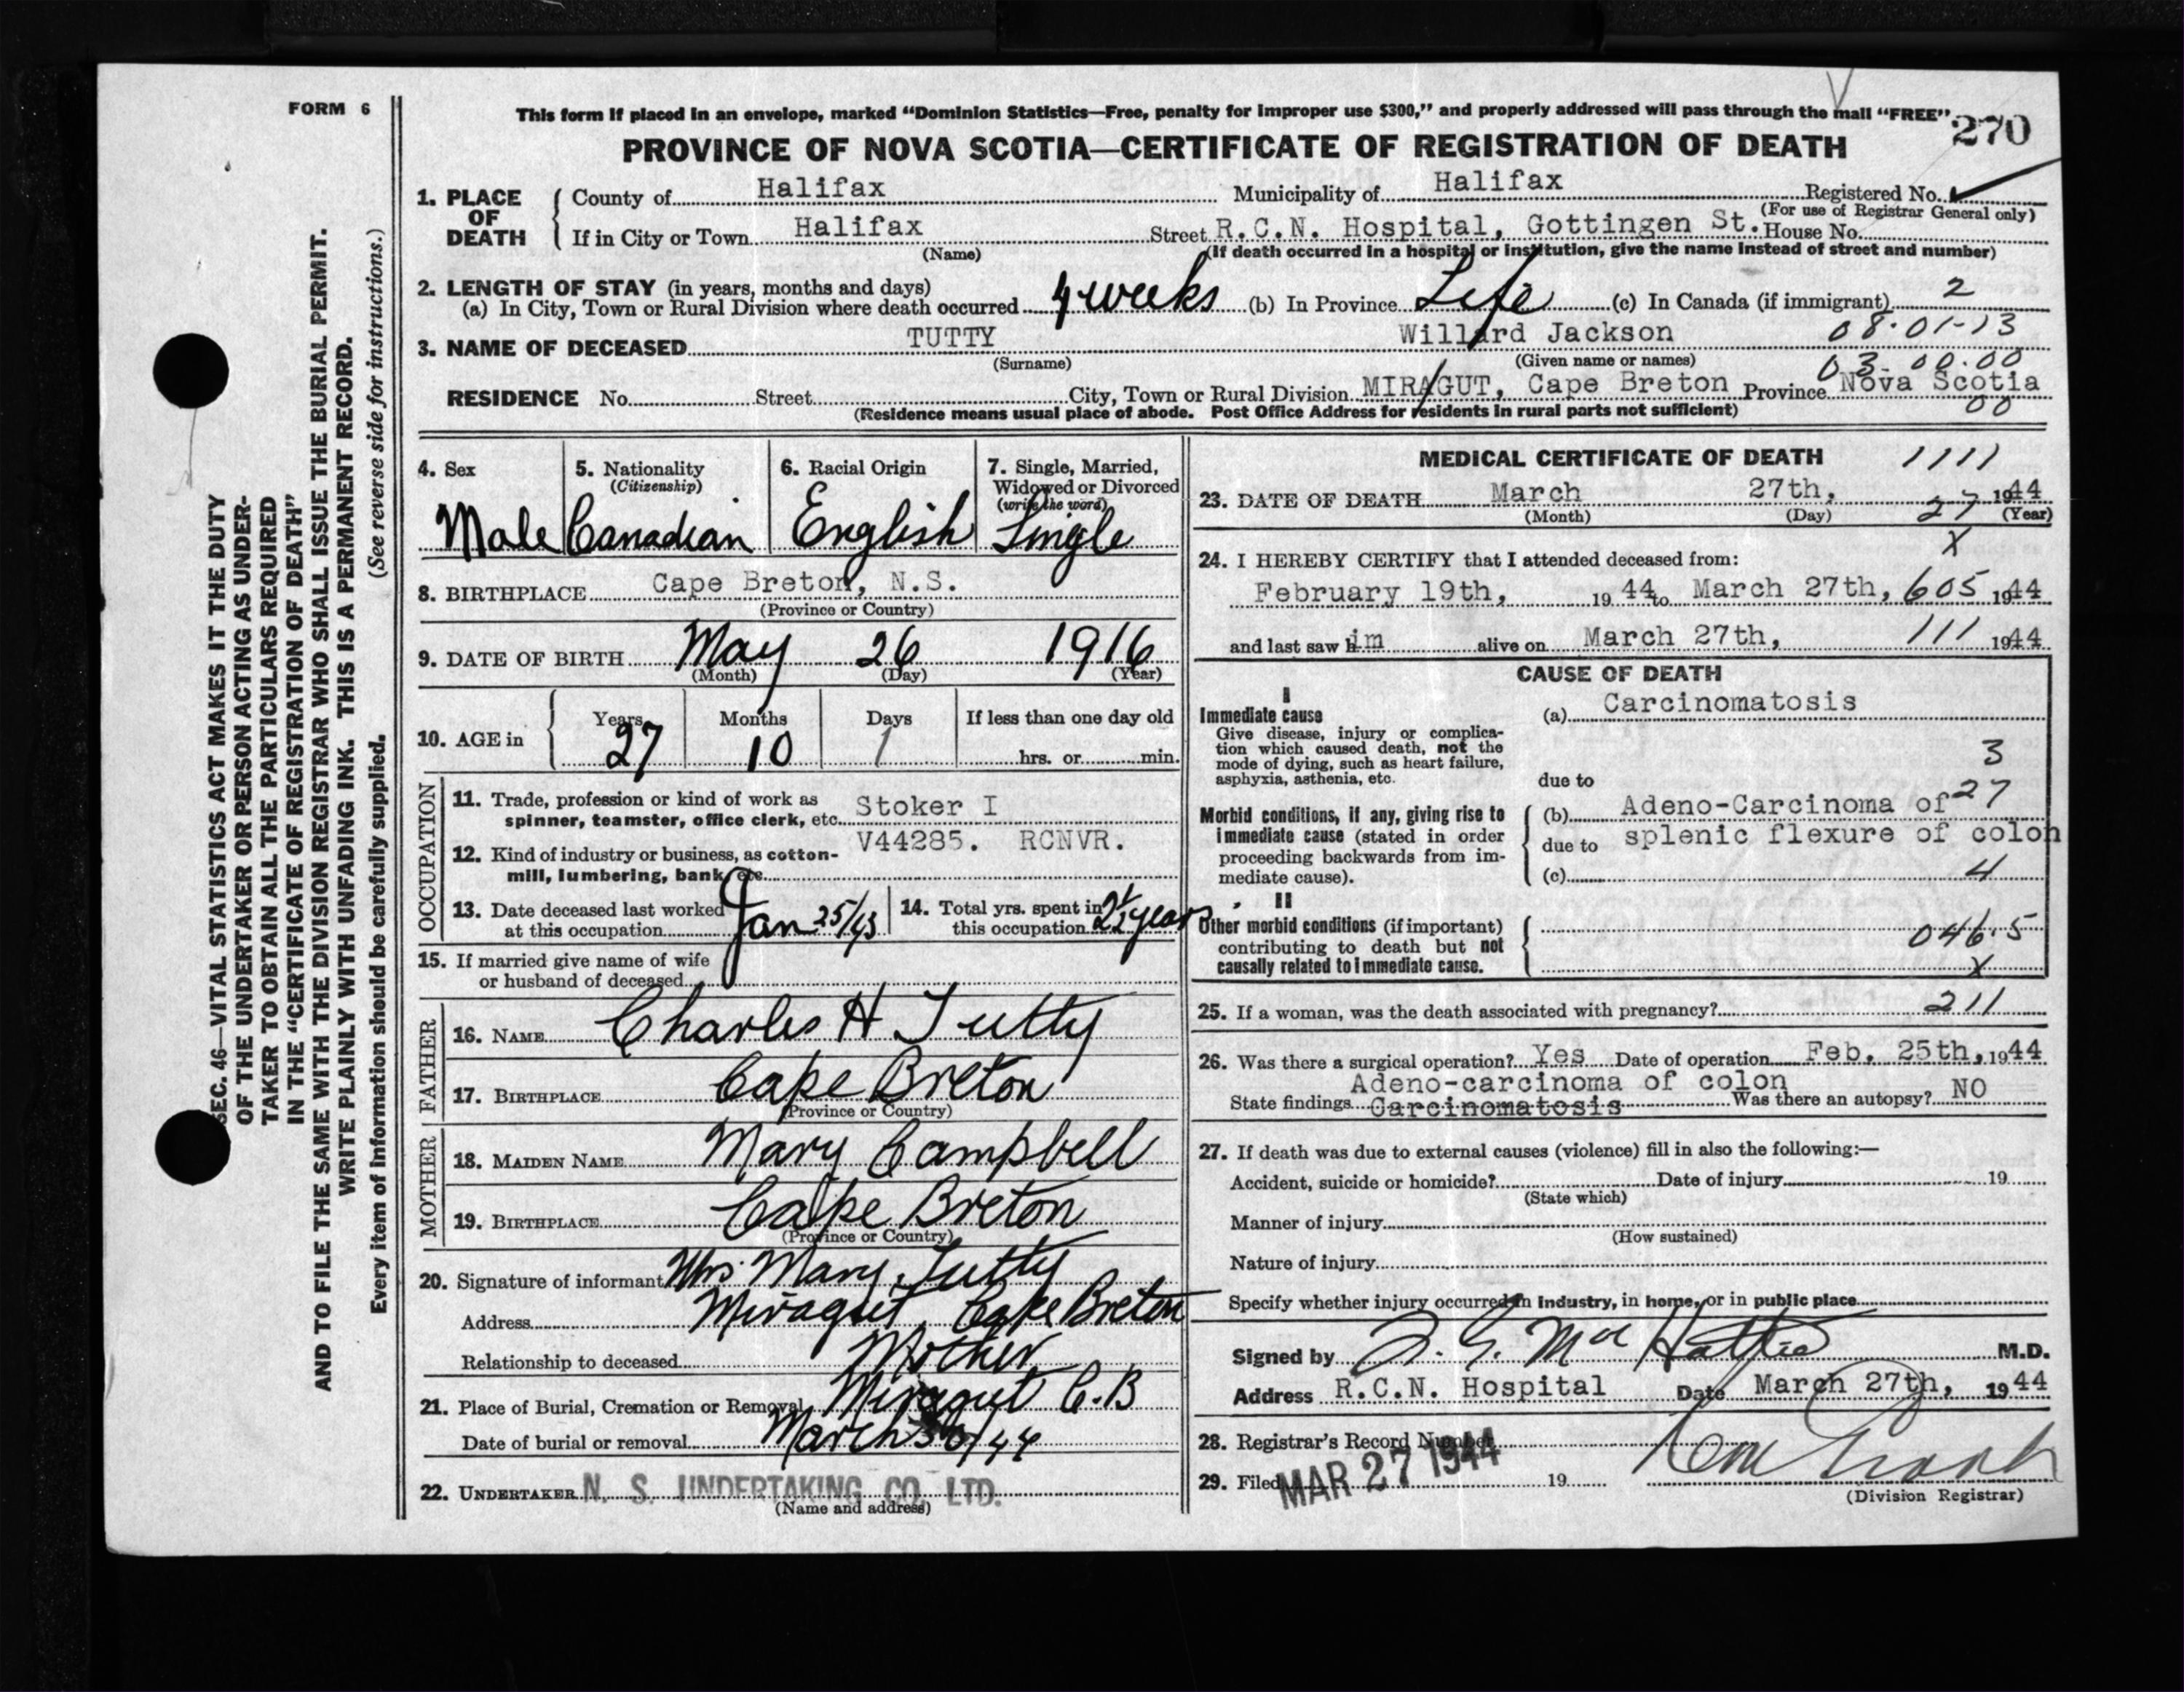 FORM 6
This form if placed in an envelope, marked “Dominion Statistics—Free, penalty for improper use $300,” and properly addressed will pass through the mail “FREE”
270
PROVINCE OF NOVA SCOTIA—CERTIFICATE OF REGISTRATION OF DEATH
1. PLACE OF DEATH
County of Halifax Municipality of Halifax Registered No.
(For use of Registrar General only)
If in City or Town Halifax Street R.C.N. Hospital, Gottingen St. House No.
(Name) (If death occurred in a hospital or institution, give the name instead of street and number)
2. LENGTH OF STAY (in years, months and days)
(a) In City, Town or Rural Division where death occurred 4 weeks (b) In Province Life (c) In Canada (if immigrant) 2
3. NAME OF DECEASED TUTTY Willard Jackson 08-01-13
(Surname) (Given name or names) 03-00.00
RESIDENCE No. Street City, Town or Rural Division MIRAGUT, Cape Breton Province Nova Scotia
(Residence means usual place of abode. Post Office Address for residents in rural parts not sufficient) 00
SEC. 46—VITAL STATISTICS ACT MAKES IT THE DUTY
OF THE UNDERTAKER OR PERSON ACTING AS UNDER-
TAKER TO OBTAIN ALL THE PARTICULARS REQUIRED
IN THE “CERTIFICATE OF REGISTRATION OF DEATH”
AND TO FILE THE SAME WITH THE DIVISION REGISTRAR WHO SHALL ISSUE THE BURIAL PERMIT.
WRITE PLAINLY WITH UNFADING INK. THIS IS A PERMANENT RECORD.
Every item of information should be carefully supplied. (See reverse side for instructions.)
4. Sex 5. Nationality 6. Racial Origin 7. Single, Married,
(Citizenship) Widowed or Divorced
(write the word)
Male Canadian English Single
8. BIRTHPLACE Cape Breton, N.S.
(Province or Country)
9. DATE OF BIRTH May 26 1916
(Month) (Day) (Year)
10. AGE in Years Months Days If less than one day old
27 10 1 hrs. or min.
OCCUPATION
11. Trade, profession or kind of work as
spinner, teamster, office clerk, etc. Stoker I
12. Kind of industry or business, as cotton-
mill, lumbering, bank, etc. V44285. RCNVR.
13. Date deceased last worked
at this occupation Jan 25/43
14. Total yrs. spent in
this occupation 2½ years
15. If married give name of wife
or husband of deceased
FATHER
16. NAME Charles H Tutty
17. BIRTHPLACE Cape Breton
(Province or Country)
MOTHER
18. MAIDEN NAME Mary Campbell
19. BIRTHPLACE Cape Breton
(Province or Country)
20. Signature of informant Mrs. Mary Tutty
Address Miragut, Cape Breton
Relationship to deceased Mother
21. Place of Burial, Cremation or Removal Miragut C.B
Date of burial or removal March 30/44
22. UNDERTAKER N. S. UNDERTAKING CO. LTD.
(Name and address)
MEDICAL CERTIFICATE OF DEATH 1111
23. DATE OF DEATH March 27th, 1944
(Month) (Day) 27 (Year)
X
24. I HEREBY CERTIFY that I attended deceased from:
February 19th, 1944 to March 27th, 605 1944
and last saw him alive on March 27th, 111 1944
CAUSE OF DEATH
I
Immediate cause (a) Carcinomatosis
Give disease, injury or complica-
tion which caused death, not the
mode of dying, such as heart failure,
asphyxia, asthenia, etc.
3
due to
27
Morbid conditions, if any, giving rise to
immediate cause (stated in order
proceeding backwards from im-
mediate cause).
(b) Adeno-Carcinoma of
due to splenic flexure of colon
(c) 4
II
Other morbid conditions (if important)
contributing to death but not
causally related to immediate cause.
046.5
X
25. If a woman, was the death associated with pregnancy? 211
26. Was there a surgical operation? Yes Date of operation Feb. 25th, 1944
Adeno-carcinoma of colon
State findings Carcinomatosis Was there an autopsy? NO
27. If death was due to external causes (violence) fill in also the following:—
Accident, suicide or homicide? Date of injury 19
(State which)
Manner of injury
(How sustained)
Nature of injury
Specify whether injury occurred in industry, in home, or in public place
Signed by M.D.
Address R.C.N. Hospital Date March 27th, 1944
28. Registrar's Record Number
29. Filed MAR 27 1944 19
(Division Registrar)